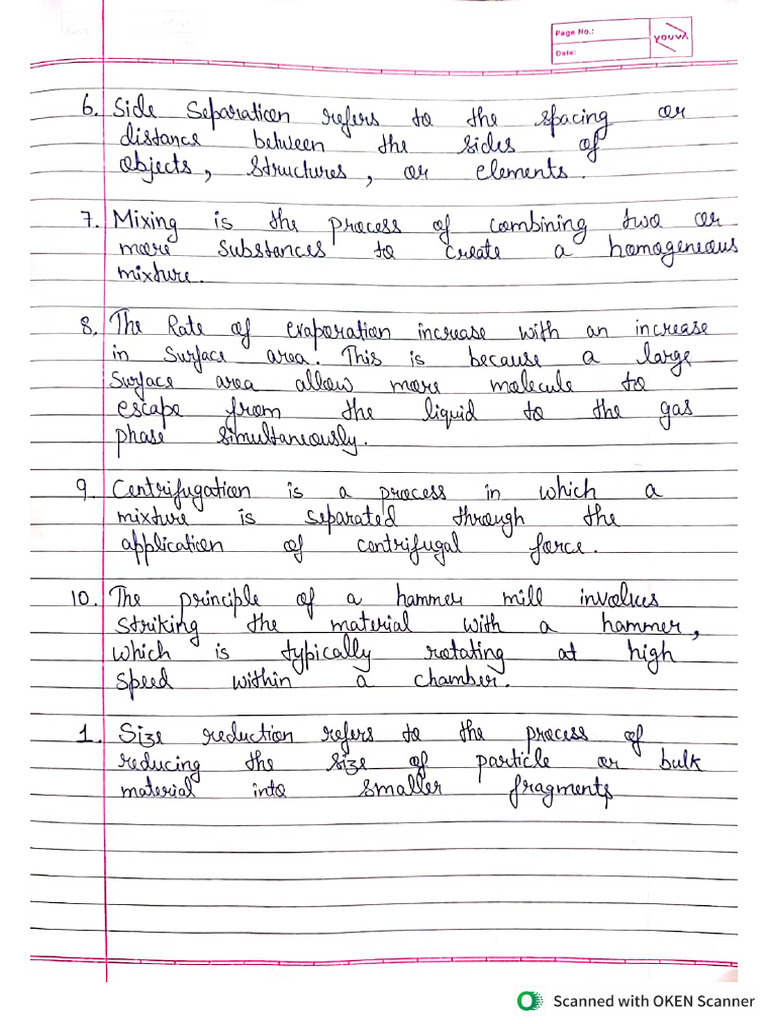 Page No.:
Date:
YOUVA
6. Side Separation refers to the spacing or
distance between the sides of
objects, structures, or elements.
7. Mixing is the process of combining two or
more substances to create a homogeneous
mixture.
8. The Rate of evaporation increase with an increase
in surface area. This is because a large
surface area allow more molecule to
escape from the liquid to the gas
phase simultaneously.
9. Centrifugation is a process in which a
mixture is separated through the
application of centrifugal force.
10. The principle of a hammer mill involves
striking the material with a hammer,
which is typically rotating at high
speed within a chamber.
1. Size reduction refers to the process of
reducing the size of particle or bulk
material into smaller fragments
Scanned with OKEN Scanner